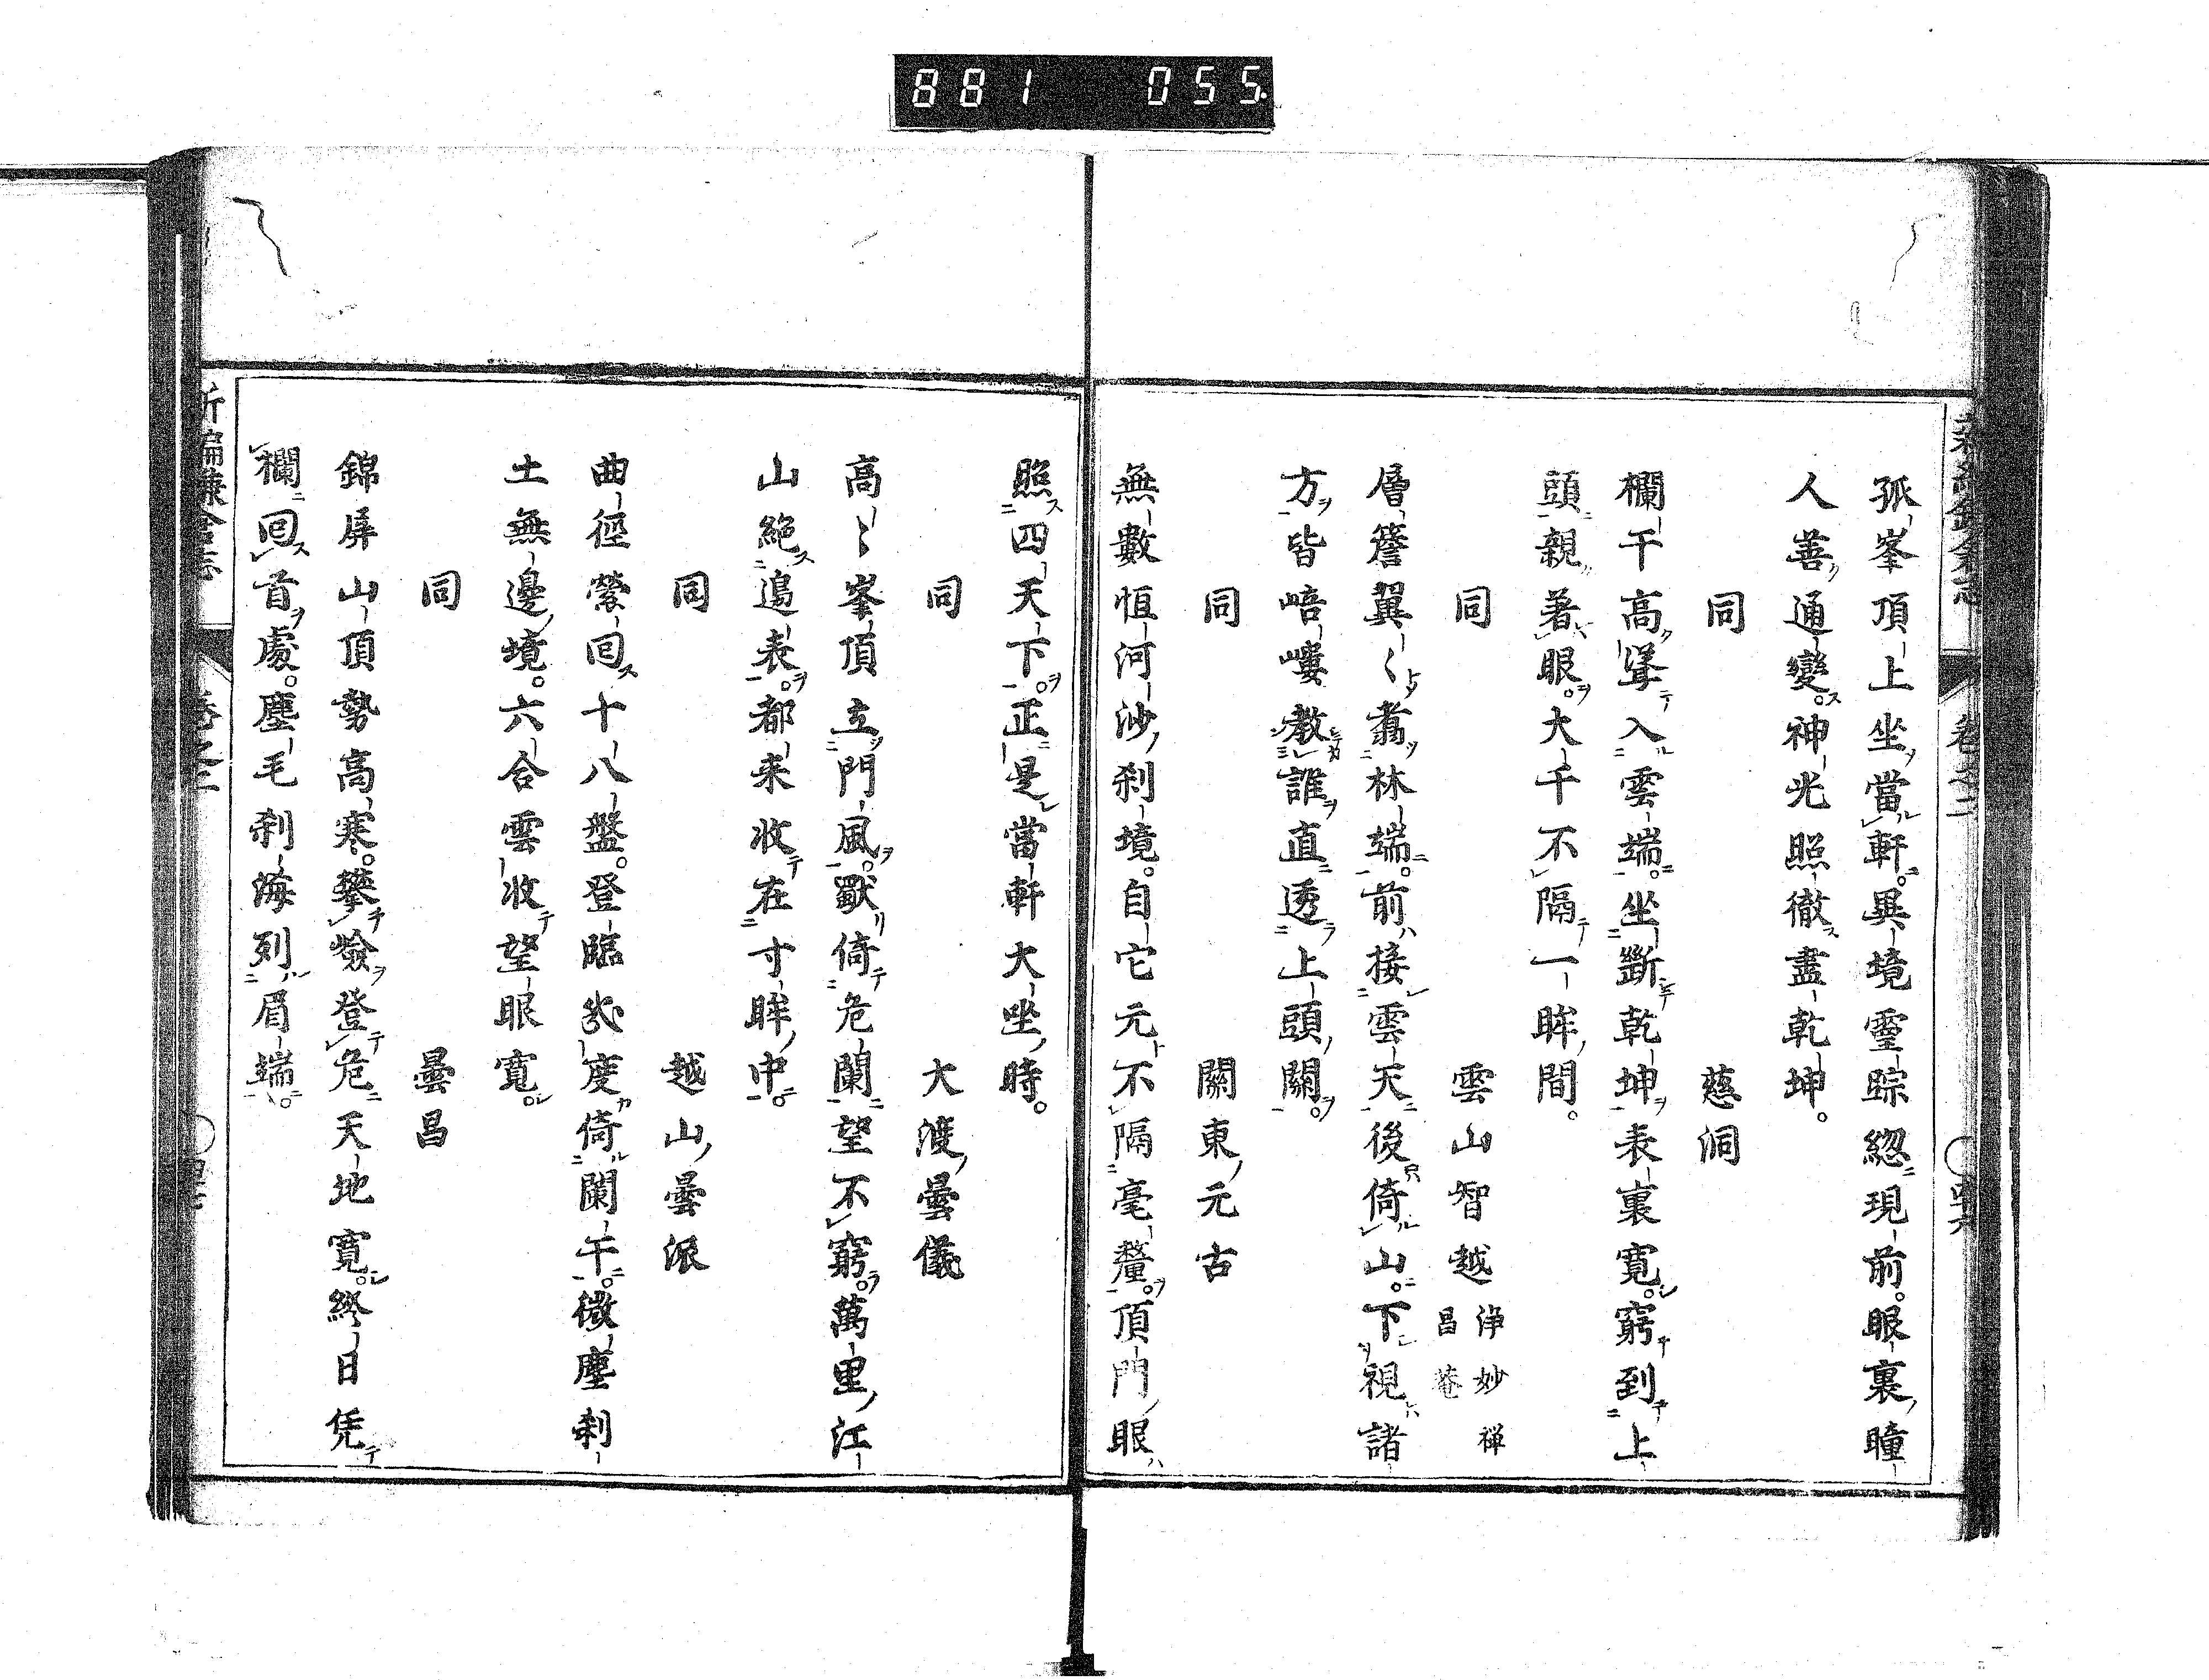 881 055.
新編鎌倉志 卷之二 四十六
孤峯頂上坐當軒。異境靈踪緫現前。眼裏瞳
人善通變。神光照徹盡乾坤。
同 慈洞
欄干高聳入雲端。坐斷乾坤表裏寬。窮到上
頭親著眼。大千不隔一眸間。
同 雲山智越 浄妙禅昌菴
層簷翼〱翥林端。前接雲天後倚山。下視諸
方皆峿嶁教誰直透上頭關。
同 關東元古
無數恒河沙刹境。自它元不隔毫釐。頂門眼
照四天下。正是當軒大坐時。
同 大渡曇儀
高〻峯頂立門風。獸倚危闌望不窮。萬里江
山絶邉表。都来收在寸眸中。
同 越山曇派
曲徑縈回十八盤。登臨幾度倚闌干。微塵刹
土無邊境。六合雲收望眼寬。
同 曇昌
錦屏山頂勢高寒。攀嶮登危天地寬。終日凭
欄回首處。塵毛刹海列眉端。
新編鎌倉志 卷之二